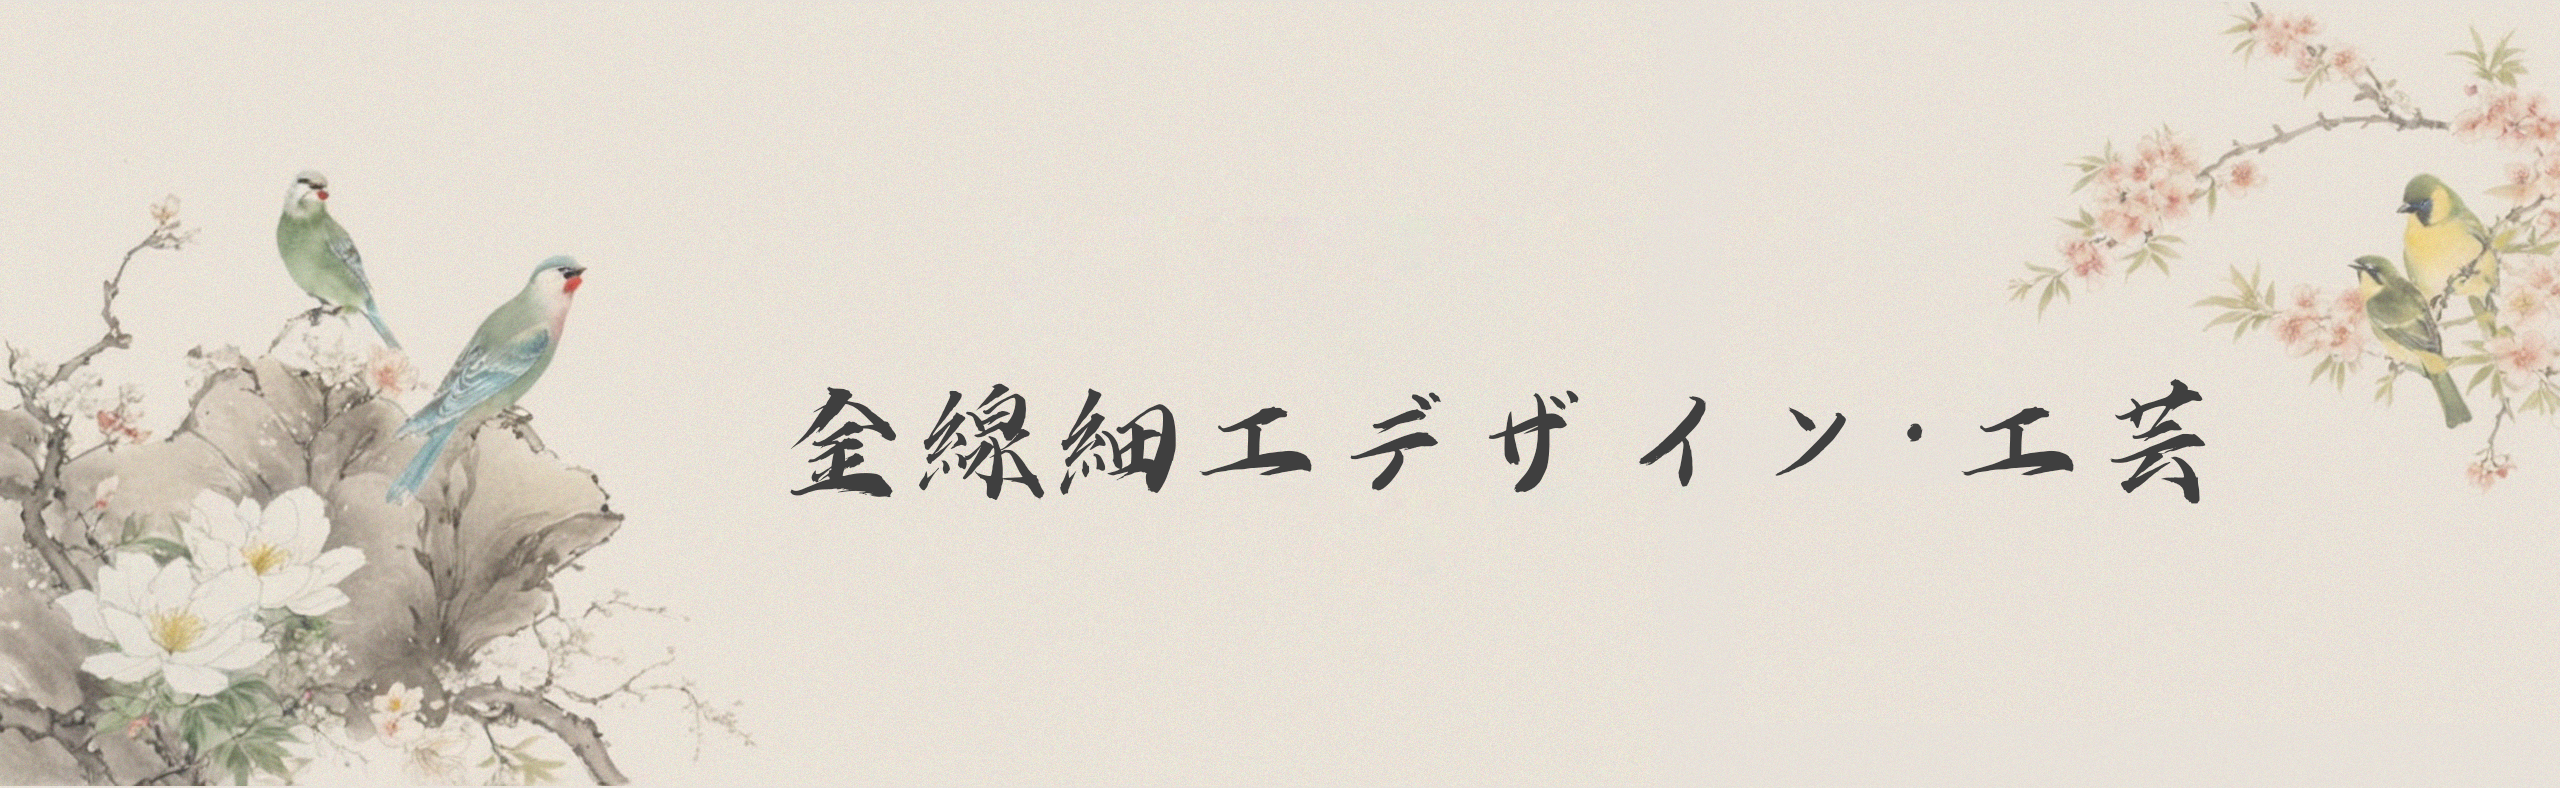 金線細工デザイン・工芸